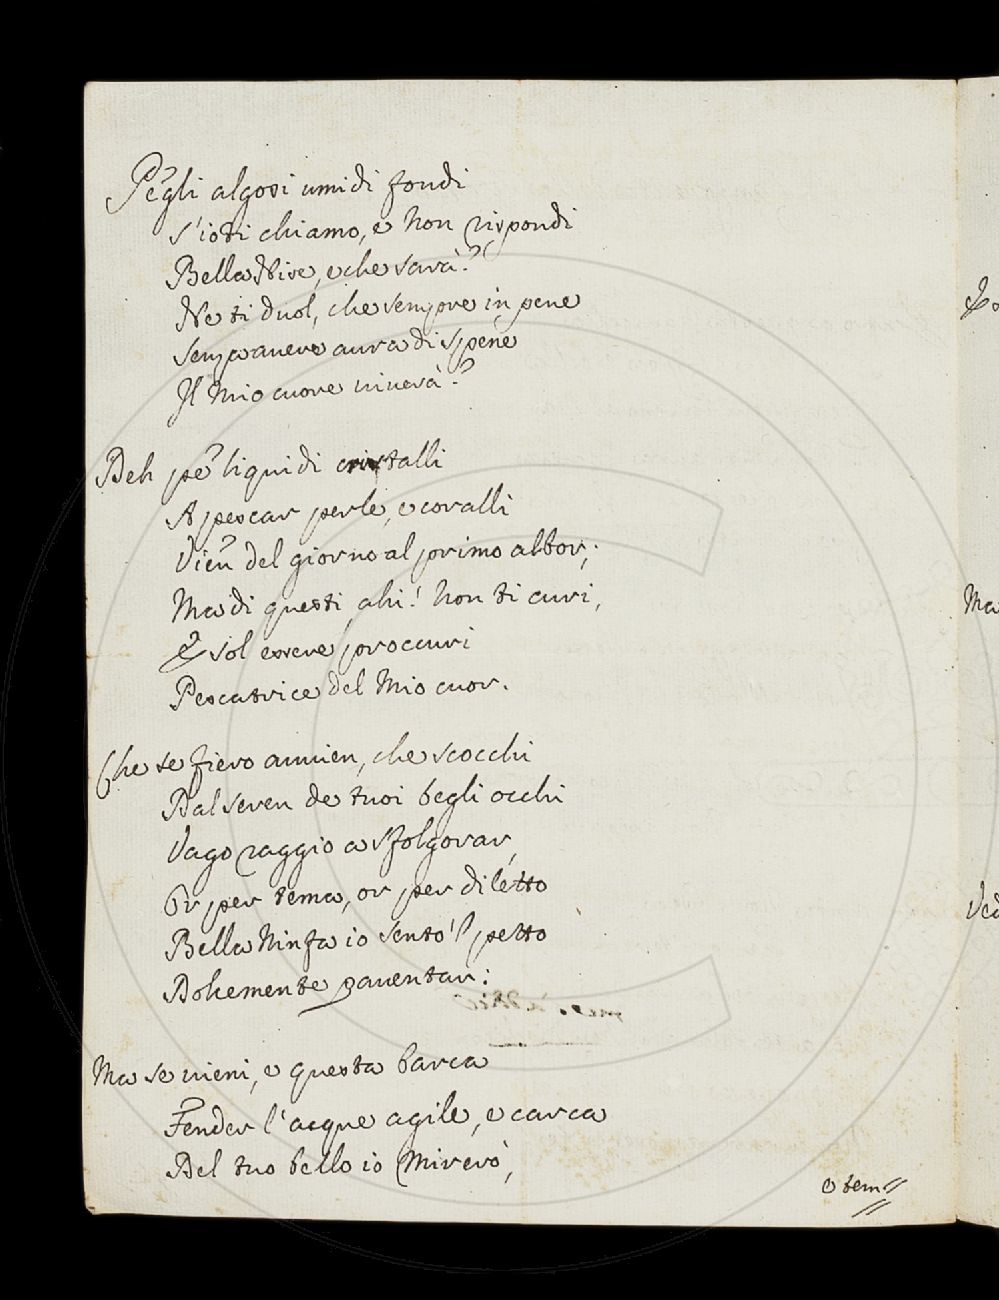 Pegli algosi umidi fondi
S'io ti chiamo, e non rispondi
Bella Nise, e che sarà?
Ne ti duol, che sempre in pene
Senza avere aura di spene
Il mio cuore viverà?
Deh pe' liquidi cristalli
A pescar perle, e coralli
Vien del giorno al primo albor;
Ma di questi, ahi! non ti curi,
E sol essere proccuri
Pescatrice del mio cuor.
Che se fiero avvien, che scocchi
Dal seren de tuoi begli occhi
Vago raggio a sfolgorar,
Or per tema, or per diletto
Bella Ninfa io sento 'l petto
Dolcemente paventar:
Ma se vieni, e questa barca
Fender l'acque agile, e carca
Del tuo bello io mirerò,
O tem
Ma